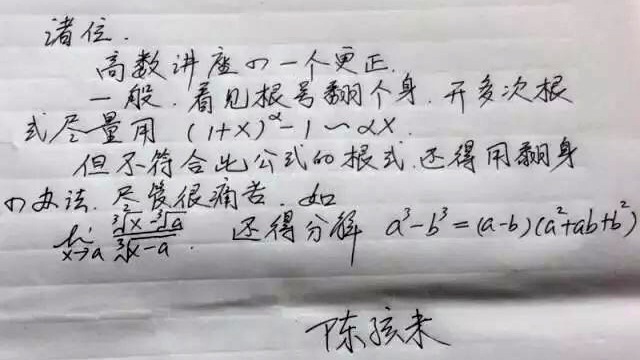 诸位.
高数讲座の一个更正.
一般.看见根号翻个身.开多次根
式尽量用 (1+x)^α-1∽αx.
但不符合此公式的根式.还得用翻身
の办法.尽管很痛苦.如
lim x→a (∛x-∛a)/∛(x-a). 还得分解 a³-b³=(a-b)(a²+ab+b²)